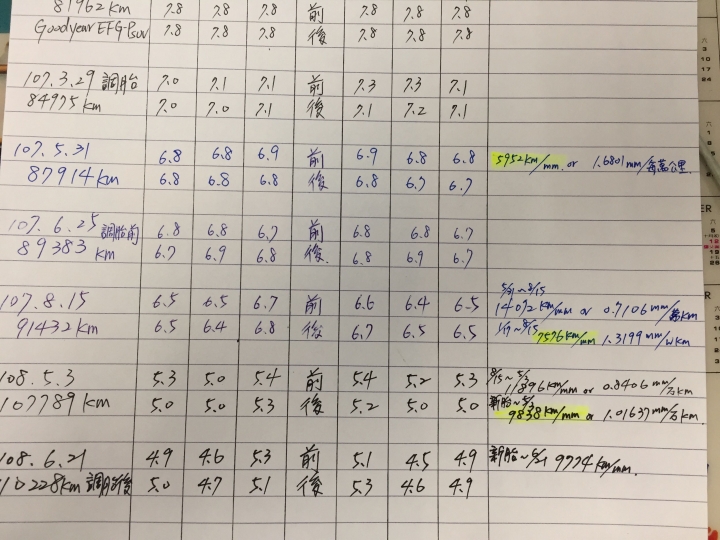 81962KM 7.8 7.8 7.8 前 7.8 7.8 7.8
Goodyear EFG-PSUV 7.8 7.8 7.8 後 7.8 7.8 7.8
107.3.29 調胎 7.0 7.1 7.1 前 7.3 7.3 7.1
84975 KM 7.0 7.0 7.1 後 7.1 7.2 7.1
107.5.31 6.8 6.8 6.9 前 6.9 6.8 6.8 5952 KM/mm or 1.6801 mm/每萬公里
87914 KM 6.8 6.8 6.8 後 6.8 6.7 6.7
107.6.25 調胎前 6.8 6.8 6.7 前 6.8 6.8 6.7
89383 KM 6.7 6.9 6.8 後 6.8 6.9 6.7
5/31~8/15
107.8.15 6.5 6.5 6.7 前 6.6 6.4 6.5 14072 KM/mm or 0.7106 mm/萬KM
91432 KM 6.5 6.4 6.8 後 6.7 6.5 6.5 7576 KM/mm 1.3199 mm/WKM
108.5.3 5.3 5.0 5.4 前 5.4 5.2 5.3 8/15~5/3 11896 KM/mm or 0.8406 mm/万KM
107789 KM 5.0 5.0 5.3 後 5.2 5.0 5.0 新胎~5/3 9838 KM/mm or 1.01637 mm/万KM
108.6.21 4.9 4.6 5.3 前 5.1 4.5 4.9 新胎~6/21 9774 KM/mm
110228KM 調胎後 5.0 4.7 5.1 後 5.3 4.6 4.9